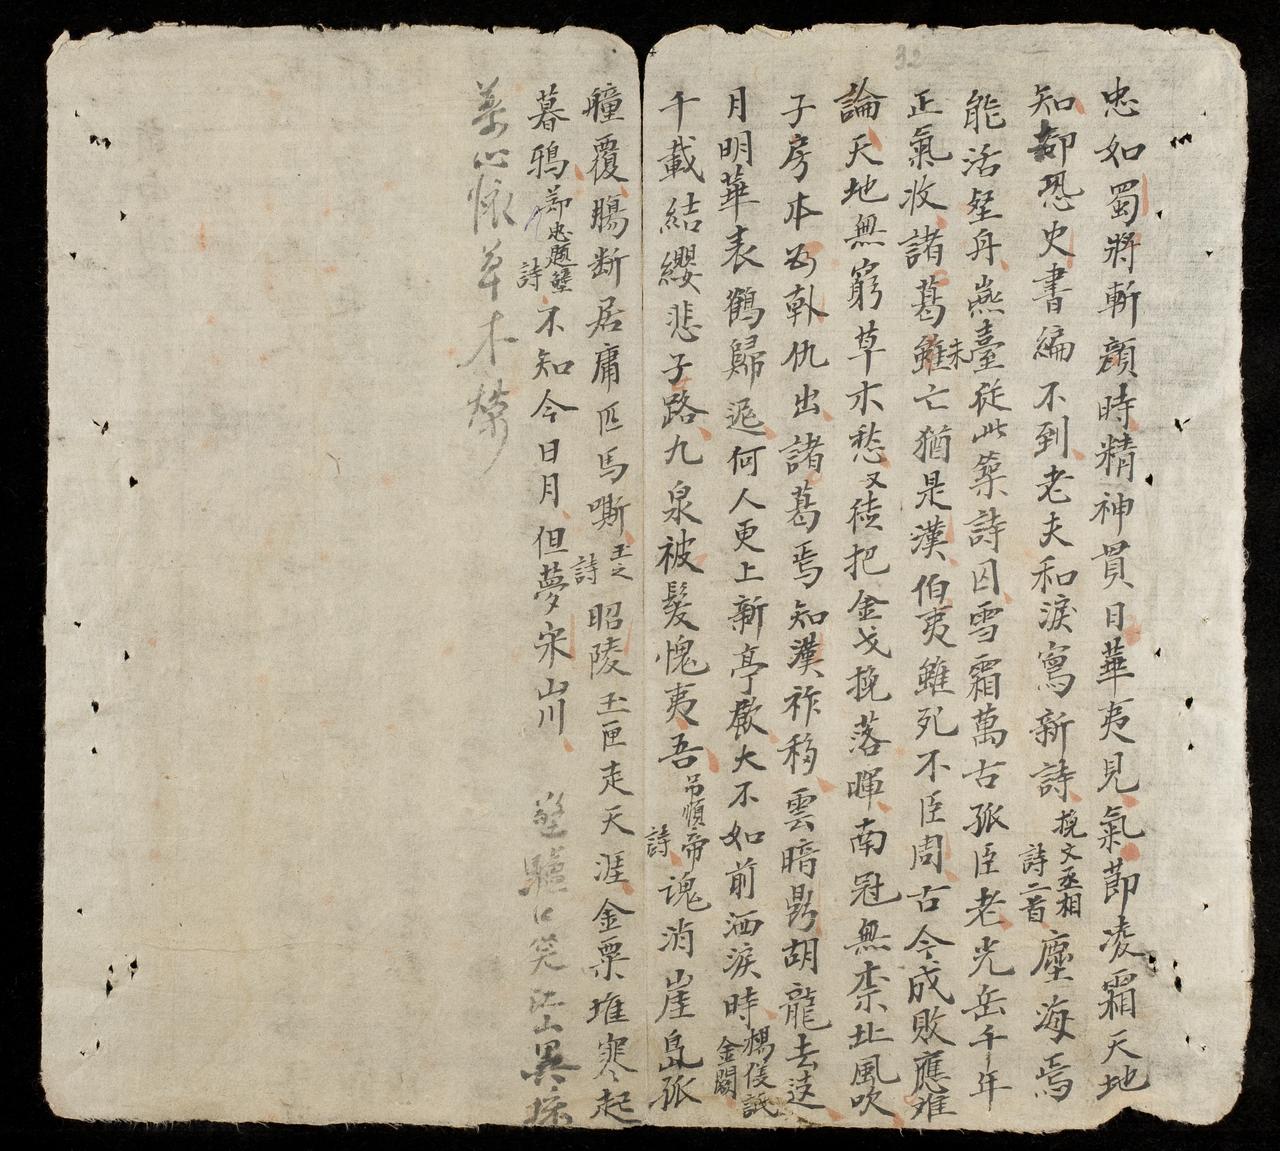 32
忠如蜀將斬顔時精神貫日華夷見氣莭凌霜天地
知却恐史書編不到老夫和淚寫新詩挽文丞相詩二首塵海焉
能活壑舟燕臺從此築詩囚雪霜萬古孤臣老光岳千年
正氣收諸葛雖未亡猶是漢伯夷雖死不臣周古今成敗應难
論天地無窮草木愁又徒把金戈挽落暉南冠無柰北風吹
子房本為韩仇出諸葛焉知漢祚移雲暗鼎胡龍去遠
月明華表鶴歸遲何人更上新亭飲大不如前洒淚時楊僕詆金闕
千載結纓悲子路九泉被髮愧夷吾吊慎帝詩魂消崖島孤
艟覆腸断居庸匹馬嘶王之詩昭陵玉匣走天涯金粟堆寒起
暮鴉節忠題壁詩不知今日月但夢宋山川
驢口笑江山異
心懷草木